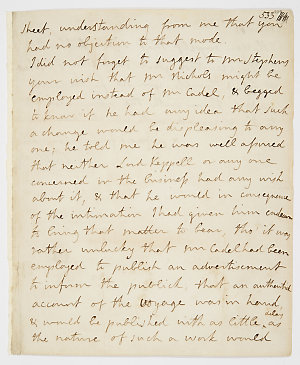 533
sheet, understanding from me that you
had no objection to that mode.
I did not forget to suggest to Mr Stephens
your wish that Mr Nichols might be
employed instead of Mr Cadel, & begged
to know if he had any idea that such
a change would be displeasing to any
one; he told me he was well assured
that neither Lord Keppell or any one
concerned in the business had any wish
about it, & that he would in consequence
of the intimation I had given him endeavor
to bring that matter to bear, tho' it was
rather unlucky that Mr Cadel had been
employed to publish an advertisement
to inform the publick, that an authentick
account of the voyage was in hand,
& would be published with as little delay as
the nature of such a work would